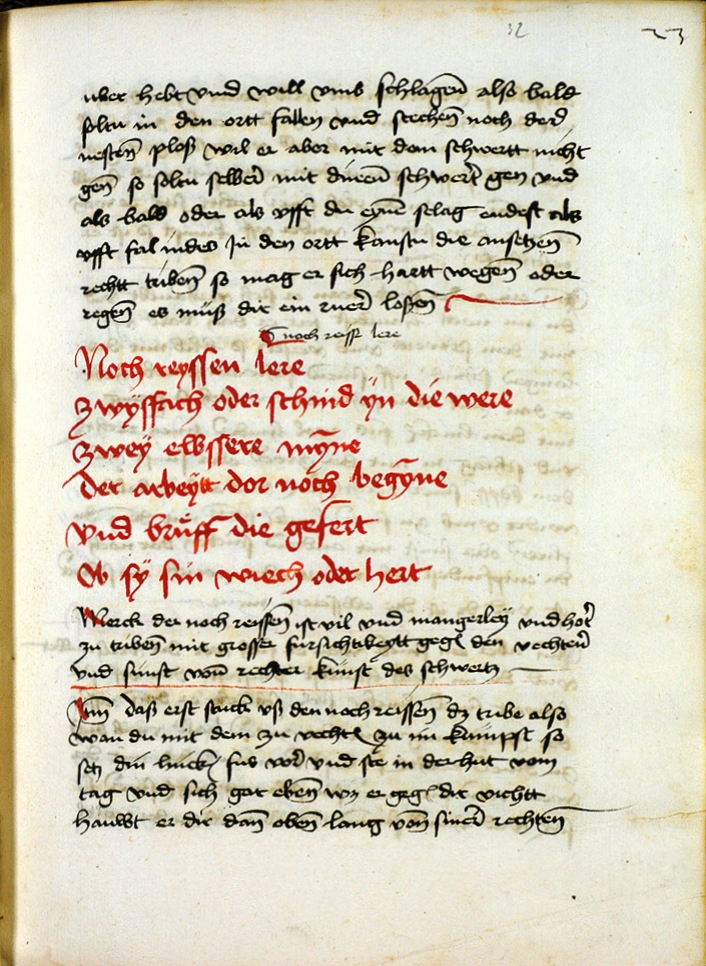 32
23
uber hebt vnd will vmb schlagen̄ also bald
soltu in den ortt fallen vnd stechen̄ noch der
nesten̄ ploß wil er aber mit dem schwertt nicht
gen̄ so soltu selber mit dinem schwert gen vnd
als bald oder als offt du eyne̅ slag endest als
offt fal indes In den ortt kanstu die ansetzen̄
rechtt triben̄ so mag er sich hartt wegen̄ oder
regen̄ es müß dir ein ruer lossen̄
noch reisse lere
Noch reyssen lere
zwyffach oder schnid yn die were
zwey elvssere myne
der arbeytt dor noch begyne
vnd brüff die gefert
Ob sy sin wiech oder hert
Merck der noch reissen̄ ist vil vnd mangerley vnd hort
zu triben̄ mit grosser fursichtikeytt geg den vechten
vnd sunst von̄ rechter kunst des schwertz
Item daß erst stuck vß den noch reissen̄ dz tribe also
wan du mit dem zu vecht zu im kumpst so
setz din linck fus vor vnd ste in der hut vom
tag vnd sich gar eben̄ wz er geg dir vichtt
hauwt er dir dan̄ oben̄ lang von̄ siner rechten̄